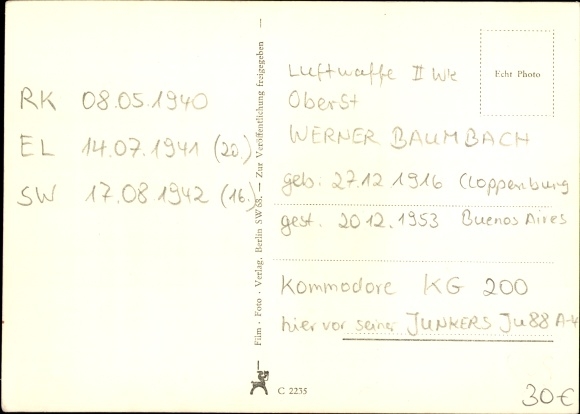 RK 08.05.1940
EL 14.07.1941 (20.)
SW 17.08 1942 (16.)
Film-Foto-Verlag, Berlin SW 68. — Zur Veröffentlichung freigegeben
C 2235
Echt Photo
Luftwaffe II Wk
Oberst
WERNER BAUMBACH
geb. 27.12 1916 Cloppenburg
gest. 20 12.1953 Buenos Aires
Kommodore KG 200
hier vor seiner JUNKERS Ju88 A-4
30€